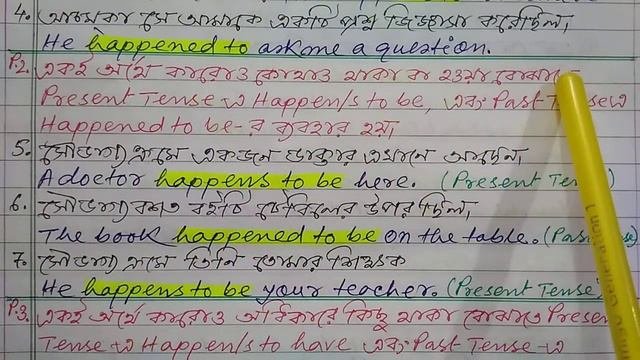 4. আচমকা সে আমাকে একটি প্রশ্ন জিজ্ঞাসা করেছিল।
He happened to ask me a question.
P.2. একই অর্থে কারোও কোথাও থাকা বা হওয়া বোঝাতে
Present Tense এ Happen/s to be, এবং Past Tense এ
Happened to be-র ব্যবহার হয়।
5. সৌভাগ্যক্রমে একজন ডাক্তার এখানে আছেন।
A doctor happens to be here. (Present Tense)
6. সৌভাগ্যবশত বইটি টেবিলের উপর ছিল।
The book happened to be on the table. (Past Tense)
7. সৌভাগ্যক্রমে তিনি তোমার শিক্ষক
He happens to be your teacher. (Present Tense)
P.3. একই অর্থে কারোও অধিকারে কিছু থাকা বোঝাতে Present
Tense এ Happen/s to have এবং Past Tense-এ